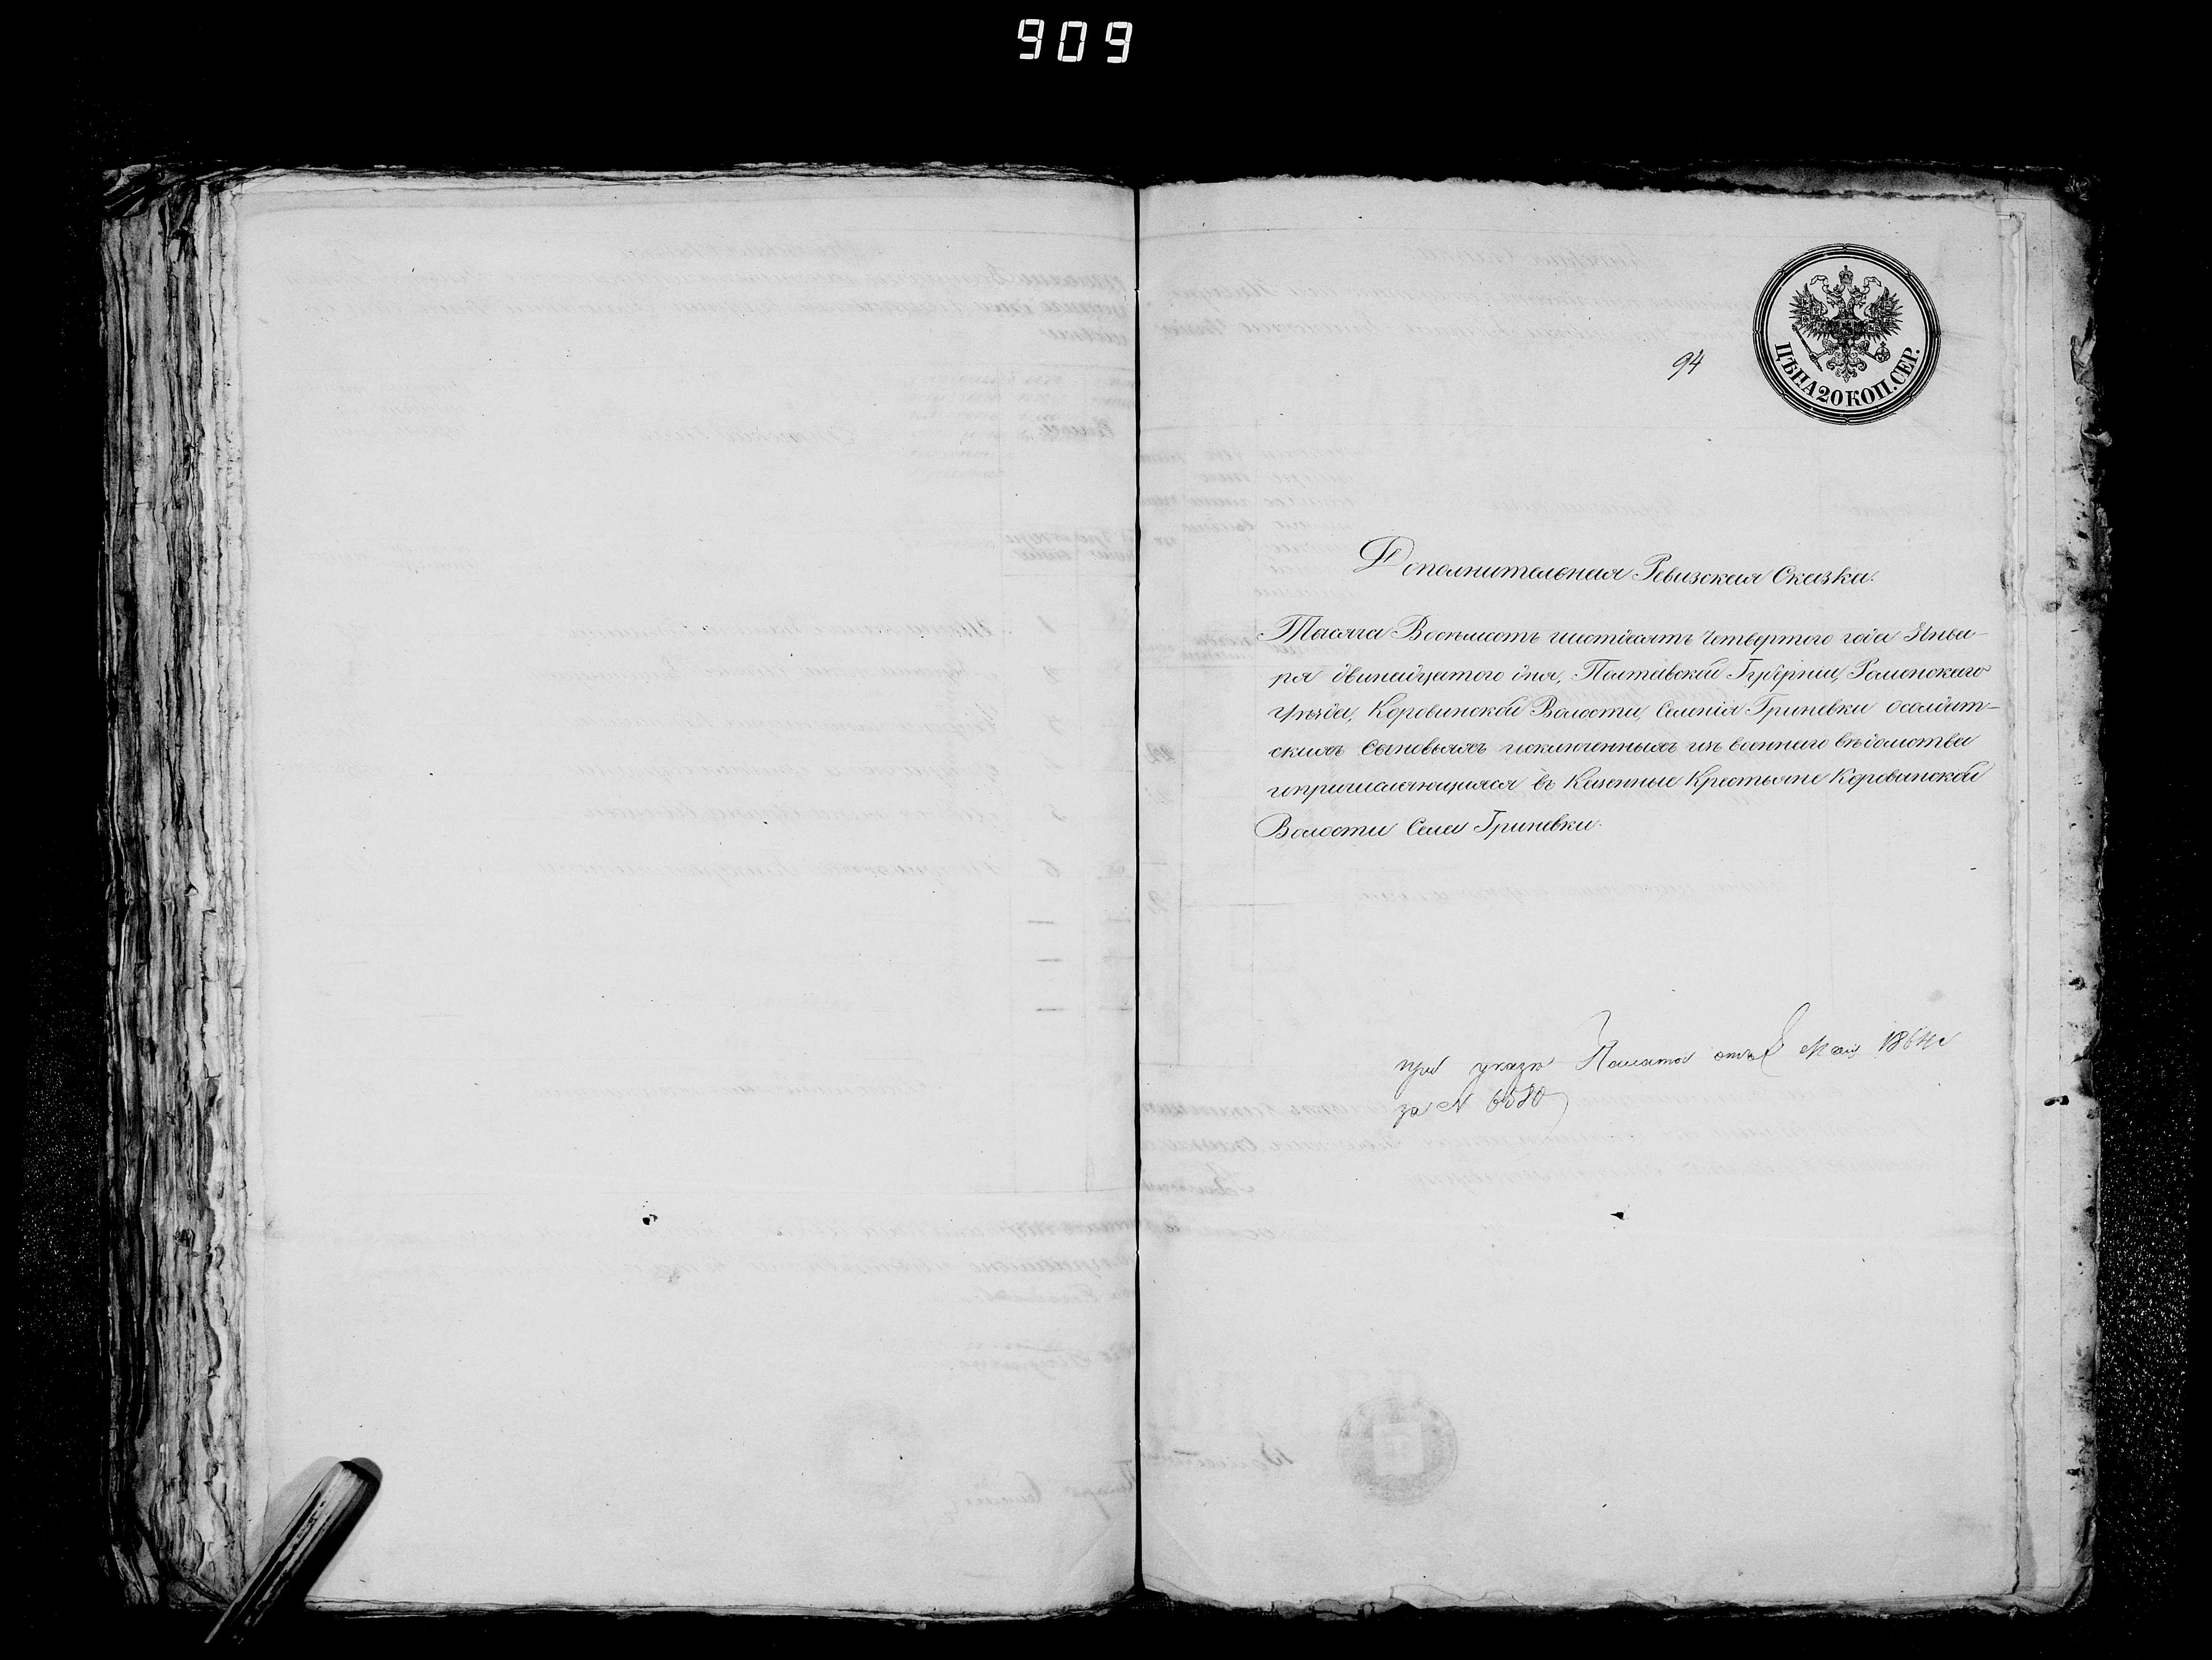 909
94
ЦѢНА 20 КОП. СЕР.
Дополнительная Ревизская Сказка.
Тысяча Восемьсотъ шестдесятъ четвертого года Янва-
ря двенадцатого дня, Полтавской Губерніи, Роменского
уезда, Коровинской Волости, Селенія Гриневки осолдат-
скихъ сыновьяхъ исключенныхъ изъ военнаго вѣдомства
ипричисляющихся въ Казенные Крестьяне Коровинской
Волости Села Гриневки.
при указѣ Палаты отъ 8 Мая 1864 г
за N 6580